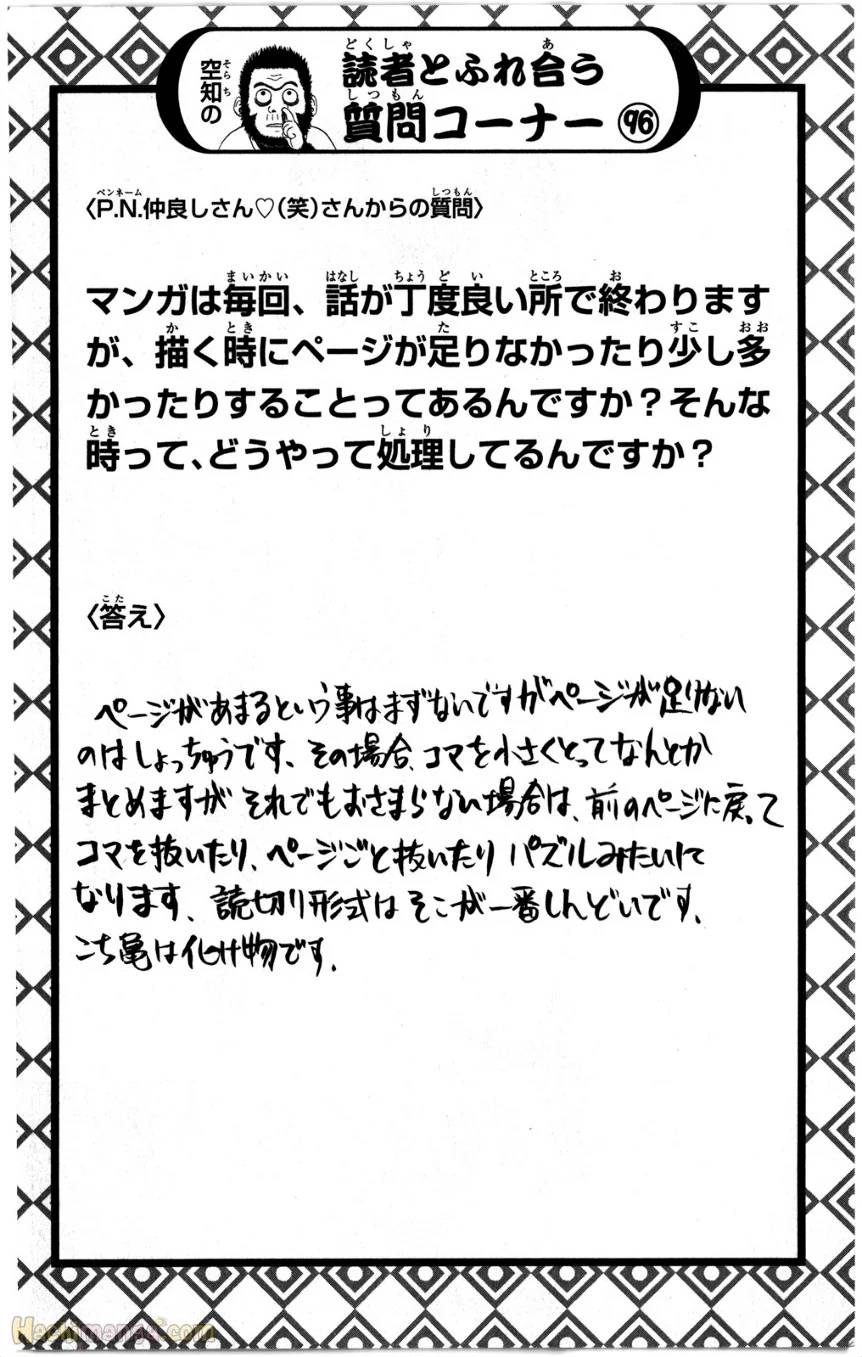 空知の
読者とふれ合う
質問コーナー 96
〈P.N.仲良しさん♡(笑)さんからの質問〉
マンガは毎回、話が丁度良い所で終わります
が、描く時にページが足りなかったり少し多
かったりすることってあるんですか？そんな
時って、どうやって処理してるんですか？
〈答え〉
ページがあまるという事はまずないですがページが足りない
のはしょっちゅうです。その場合、コマを小さくとってなんとか
まとめますが それでもおさまらない場合は、前のページに戻って
コマを抜いたり、ページごと抜いたり パズルみたいに
なります。読切り形式はそこが一番しんどいです。
こち亀は化け物です。
Hachimanga.com